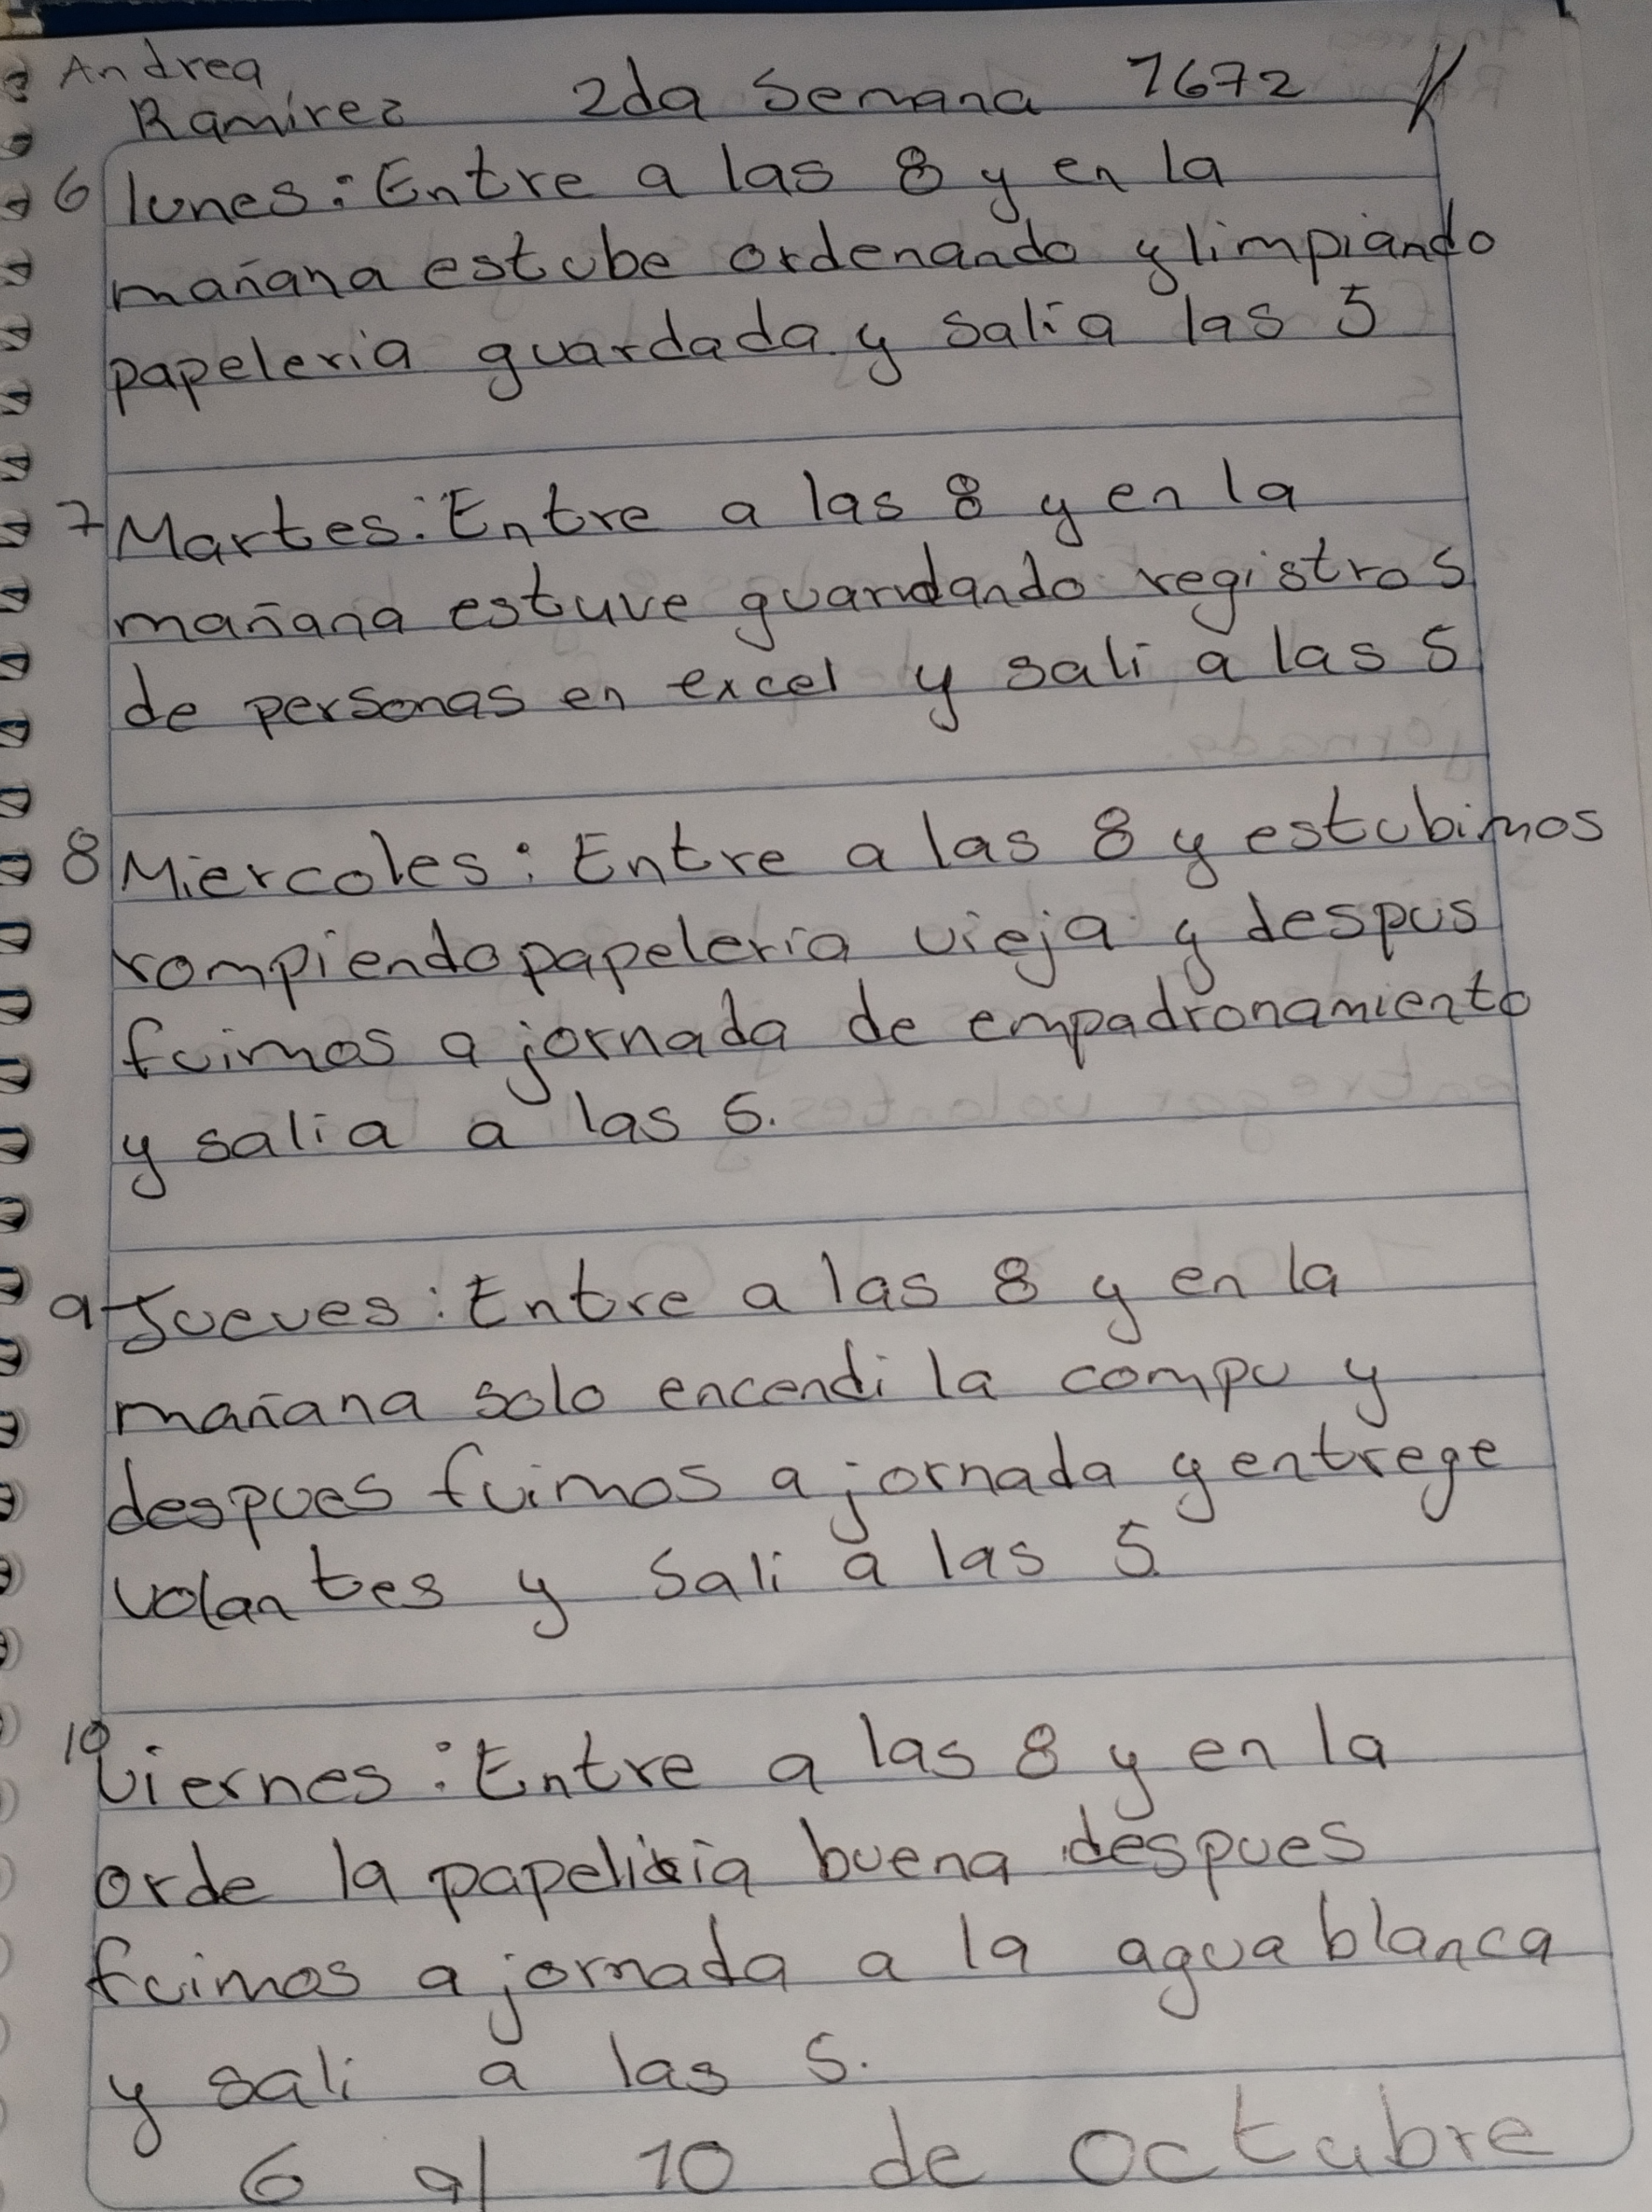 Andrea
Ramirez 2da Semana 1672
6 lunes: Entre a las 8 y en la
mañana estube ordenando y limpiando
papeleria guardada y salia las 5
7 Martes: Entre a las 8 y en la
mañana estuve guardando registros
de personas en excel y sali a las 5
8 Miercoles: Entre a las 8 y estubimos
rompiendo papeleria vieja y despus
fuimos a jornada de empadronamiento
y salia a las 5.
9 Jueves: Entre a las 8 y en la
mañana solo encendi la compu y
despues fuimos a jornada y entrege
volantes y sali a las 5
10 Viernes: Entre a las 8 y en la
orde la papeliria buena despues
fuimos a jornada a la agua blanca
y sali a las 5.
6 al 10 de octubre